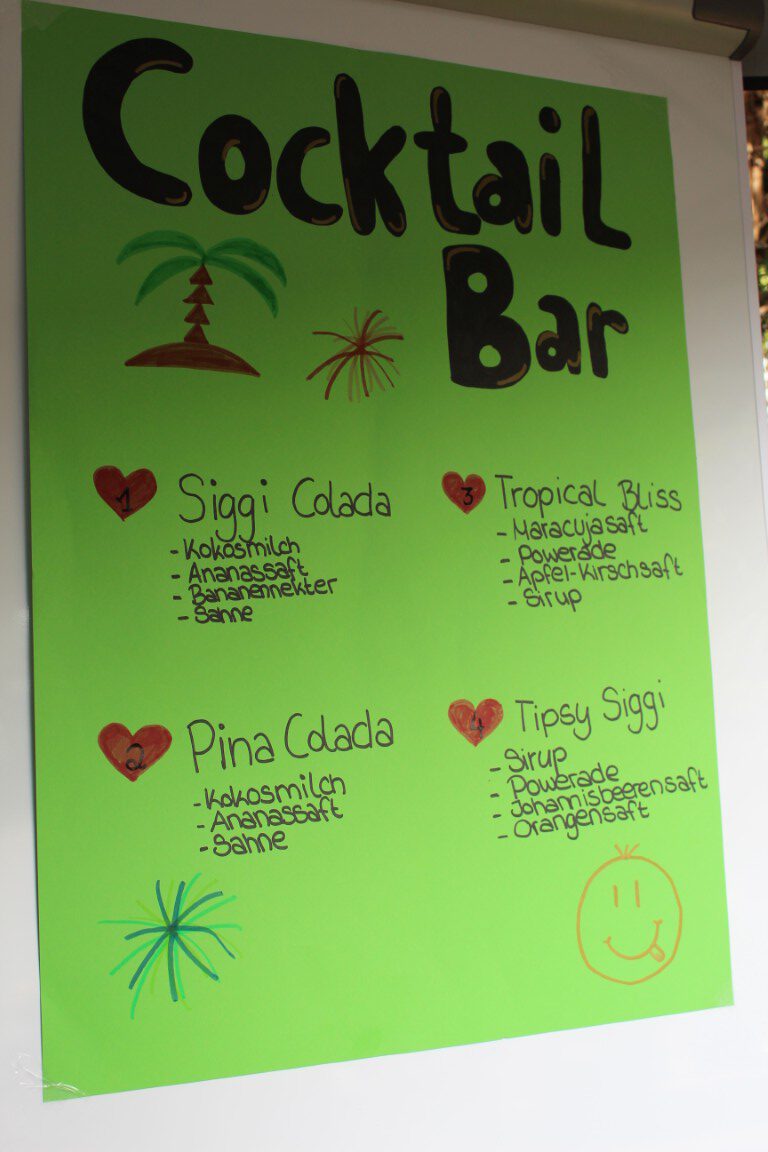 Cocktail
Bar
1 Siggi Colada
- Kokosmilch
- Ananassaft
- Bananennekter
- Sahne
2 Pina Colada
- Kokosmilch
- Ananassaft
- Sahne
3 Tropical Bliss
- Maracujasaft
- Powerade
- Apfel-Kirschsaft
- Sirup
4 Tipsy Siggi
- Sirup
- Powerade
- Johannisbeerensaft
- Orangensaft